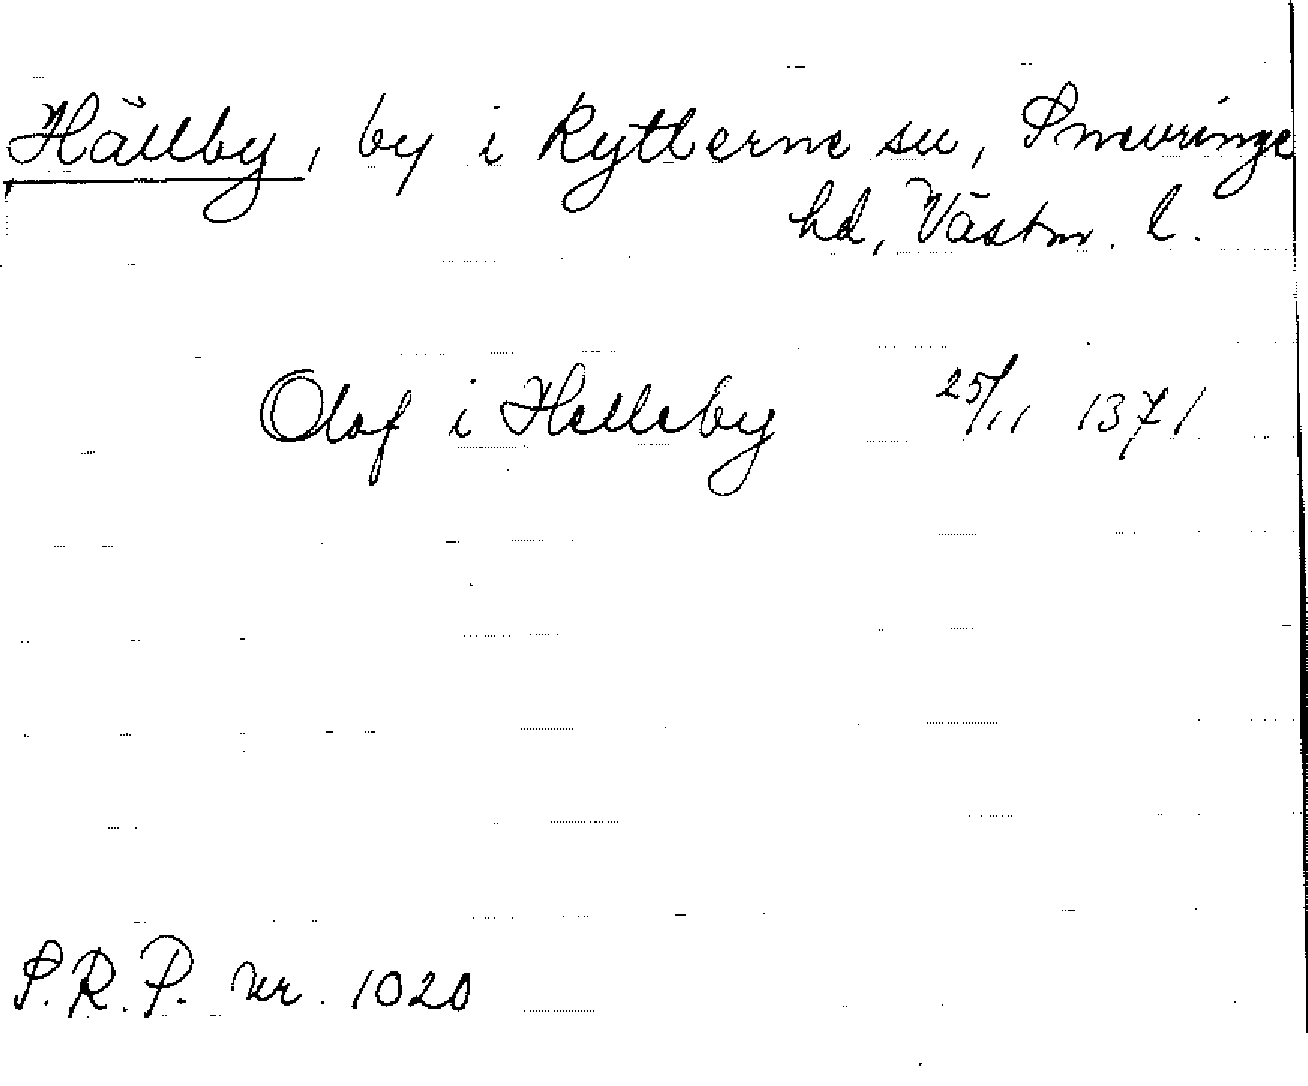 Hällby, by i Rytterne sn, Snevringe
hd, Västm. l.
Olof i Hælleby 25/11 1371
S.R.P. nr. 1020